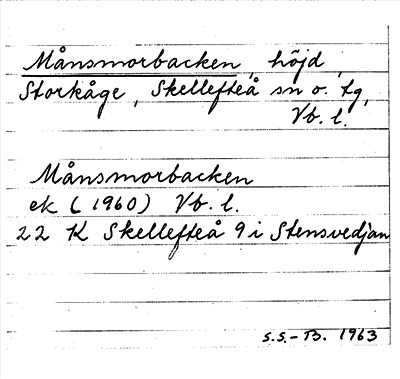 Månsmorbacken, höjd,
Storkåge, Skellefteå sn o. tg,
Vb. l.
Månsmorbacken
ek (1960) Vb. l.
22 K Skellefteå 9 i Stensvedjan
S.S.-B. 1963